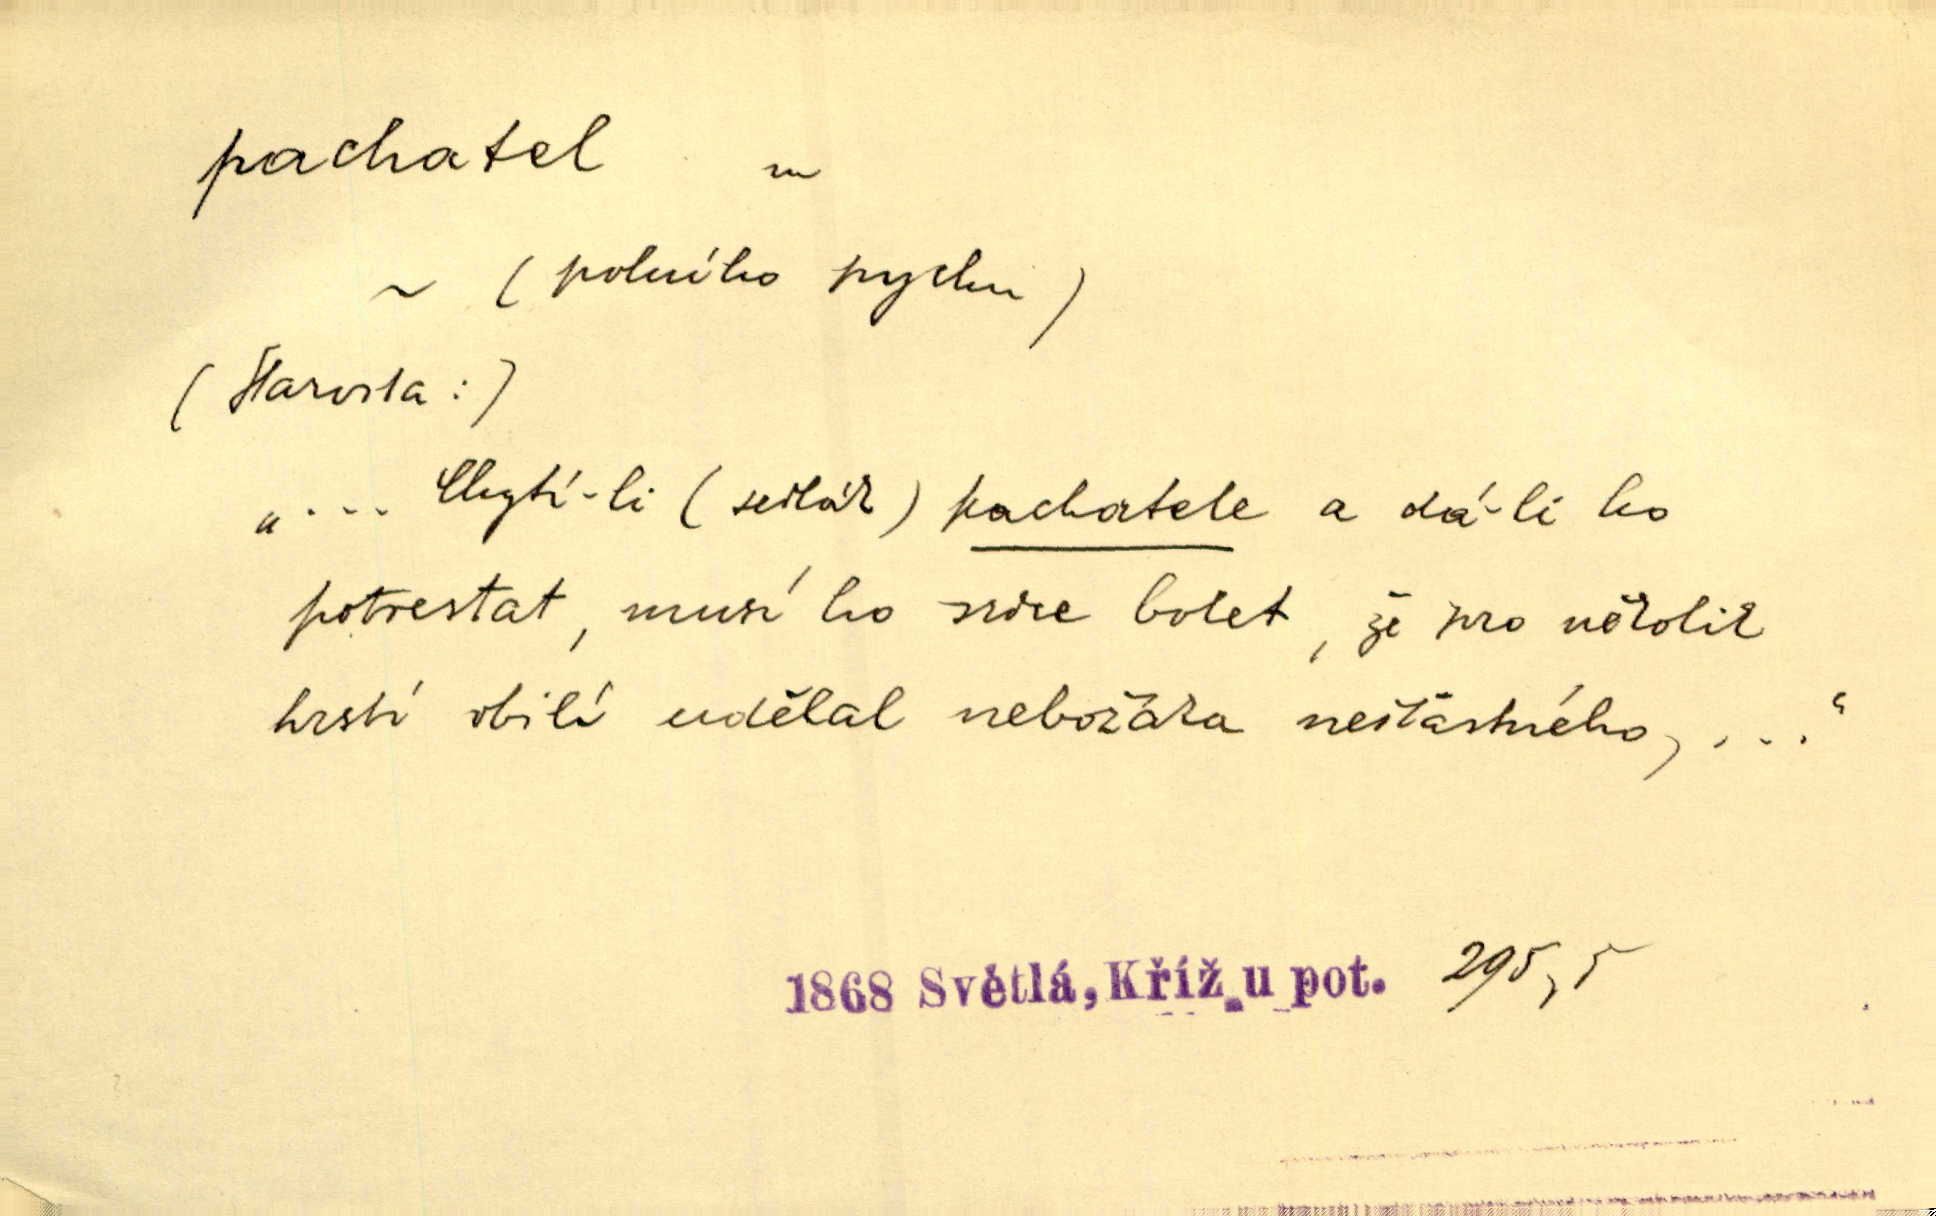 pachatel m
~ (polního pychu)
(Starosta:)
„... Chytí-li (sedlák) pachatele a dá-li ho
potrestat, musí ho srdce bolet, že pro několik
hrstí obilí udělal nebožáka nešťastného, ...“
1868 Světlá, Kříž u pot. 295,5